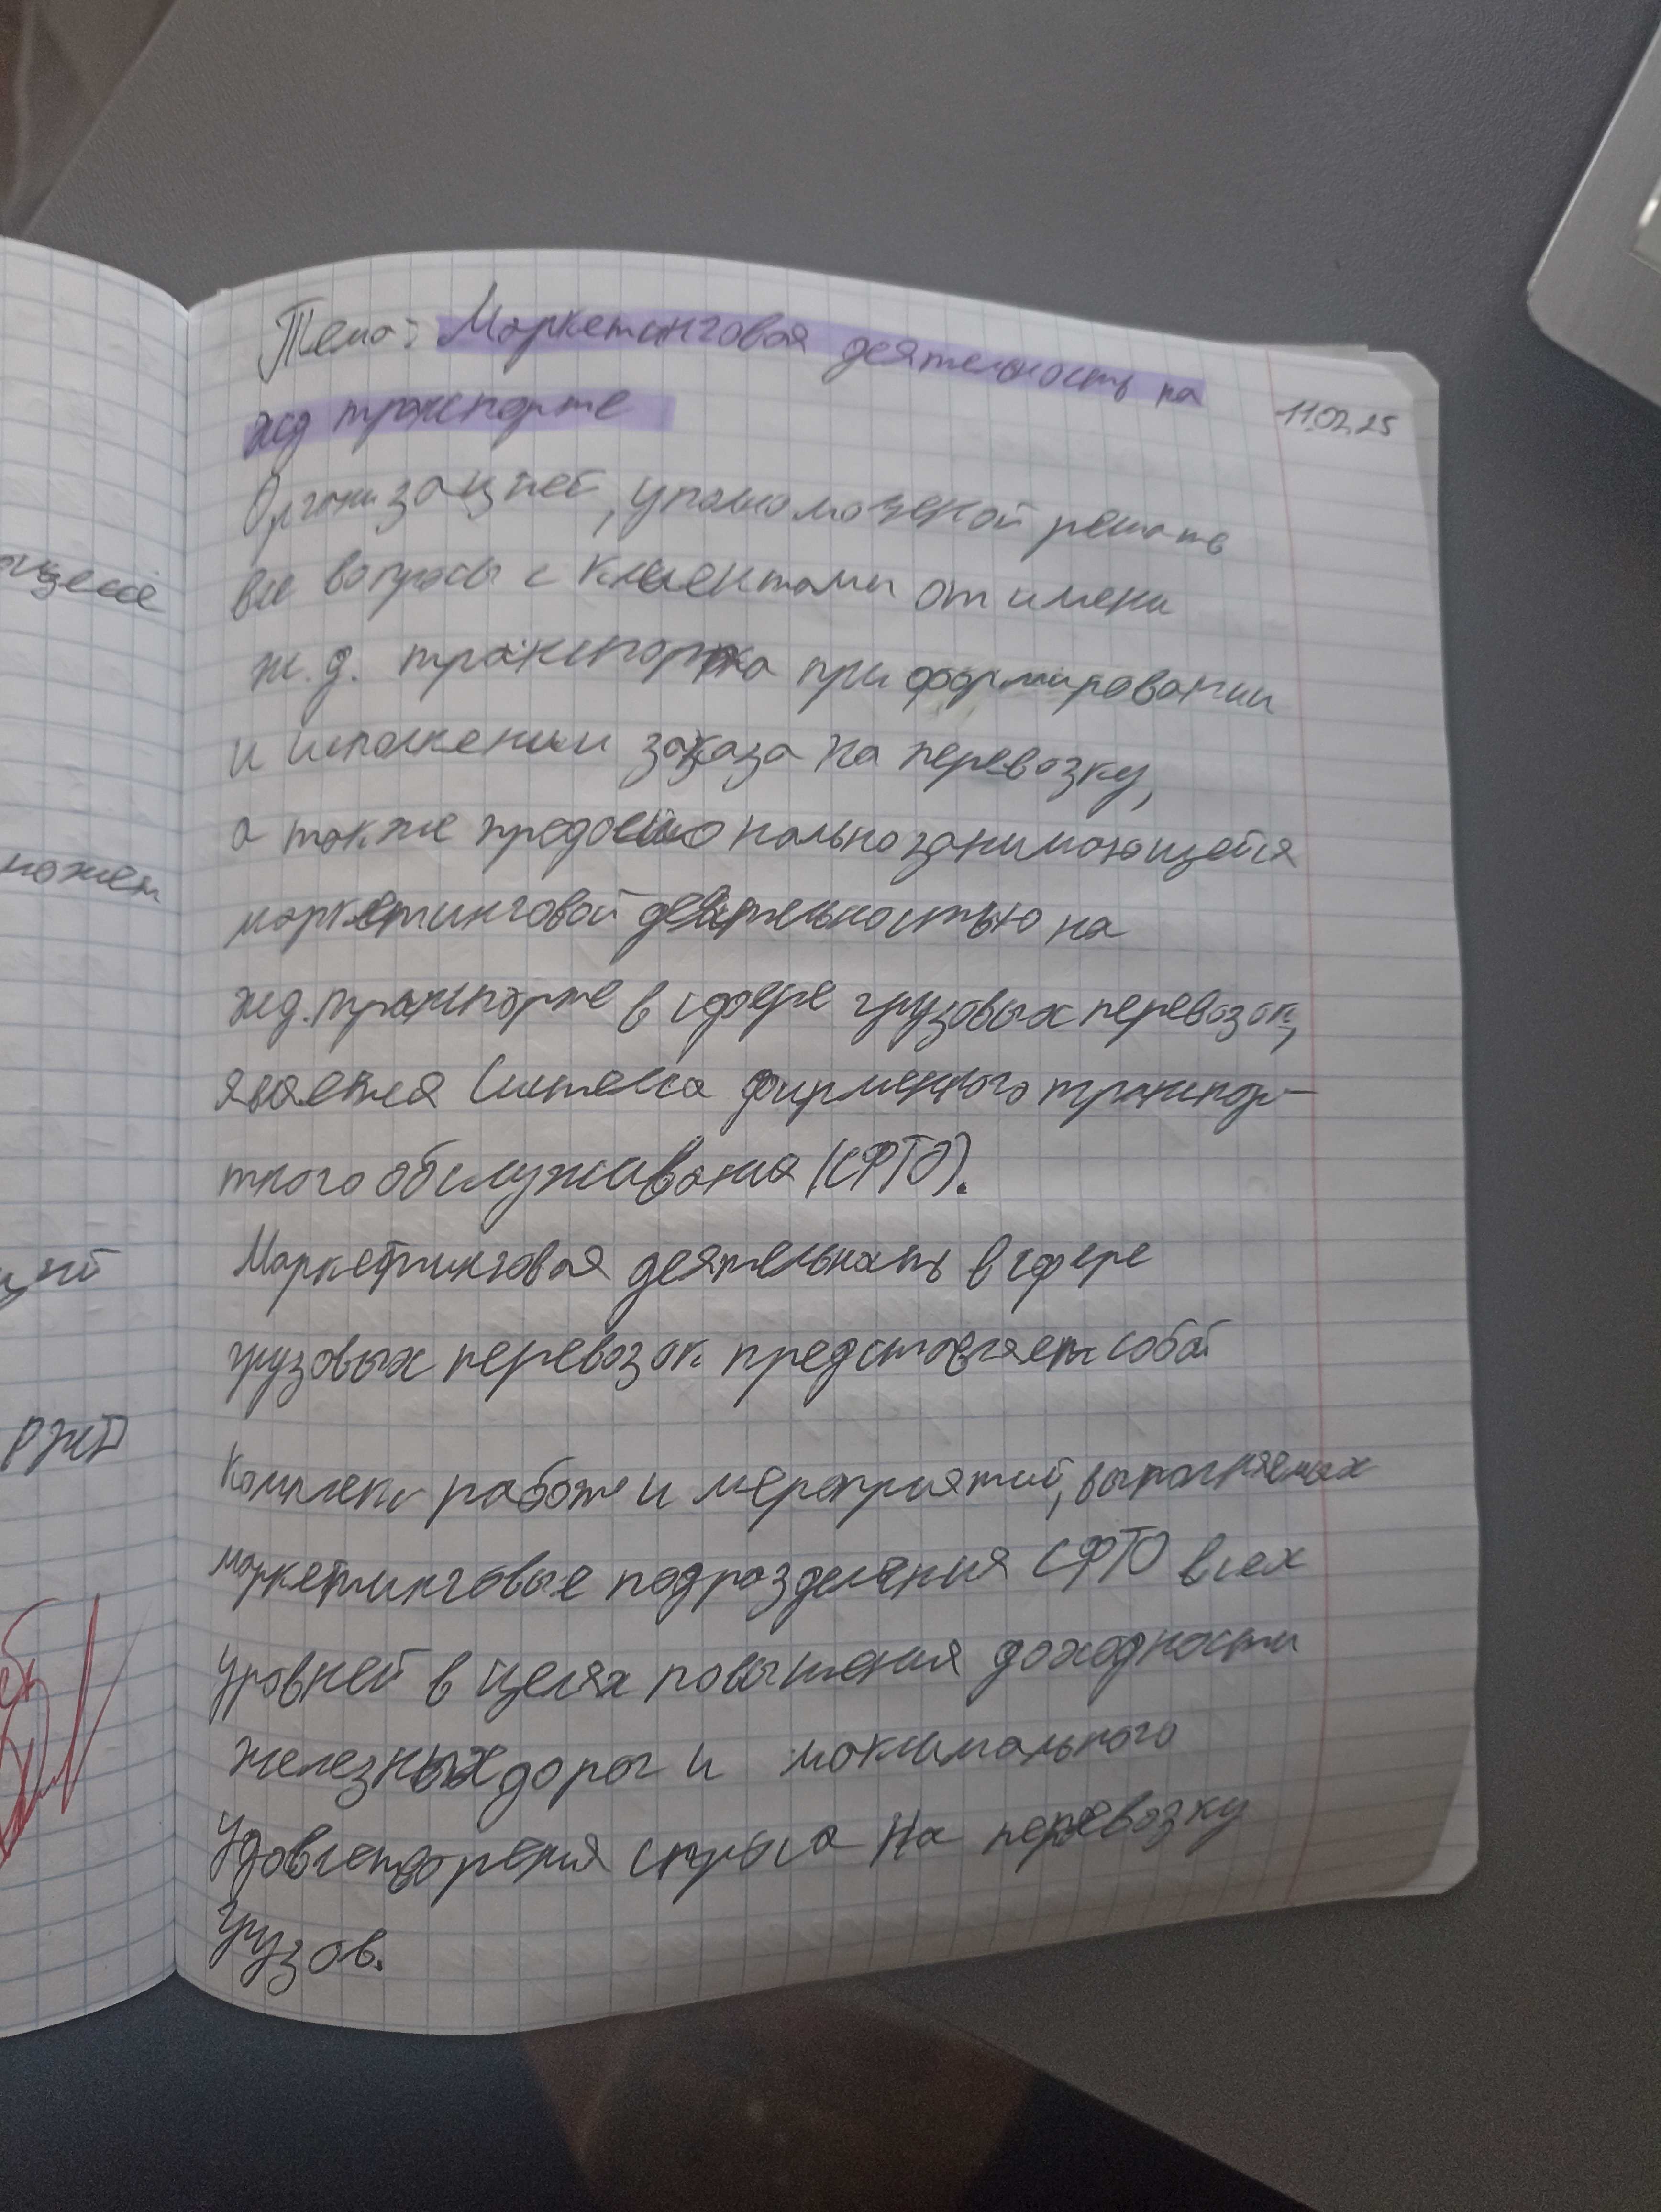 Тема: Маркетинговая деятельность на
жд транспорте
11.02.25
Организацией, уполномоченой решать
все вопросы с клиентами от имени
ж.д. транспорта при формировании
и исполнении заказа на перевозку,
а также нально занимающейся
маркетинговой деятельностью на
жд. транспорте в сфере грузовых перевозок,
является Система фирменного транспор-
тного обслуживания (СФТО).
Маркетинговая деятельность в сфере
грузовых перевозок представляет собой
комплекс работ и мероприятий, выполняемых
маркетинговые подразделения СФТО всех
уровней в целях повышения доходности
железных дорог и максимального
удовлетворения спроса на перевозку
грузов.
можем
РЖД